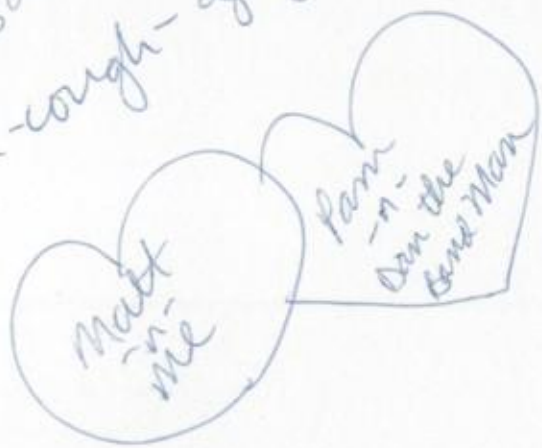 -cough-
Matt
-n-
me
Pam
-n-
Dan the
Band Man